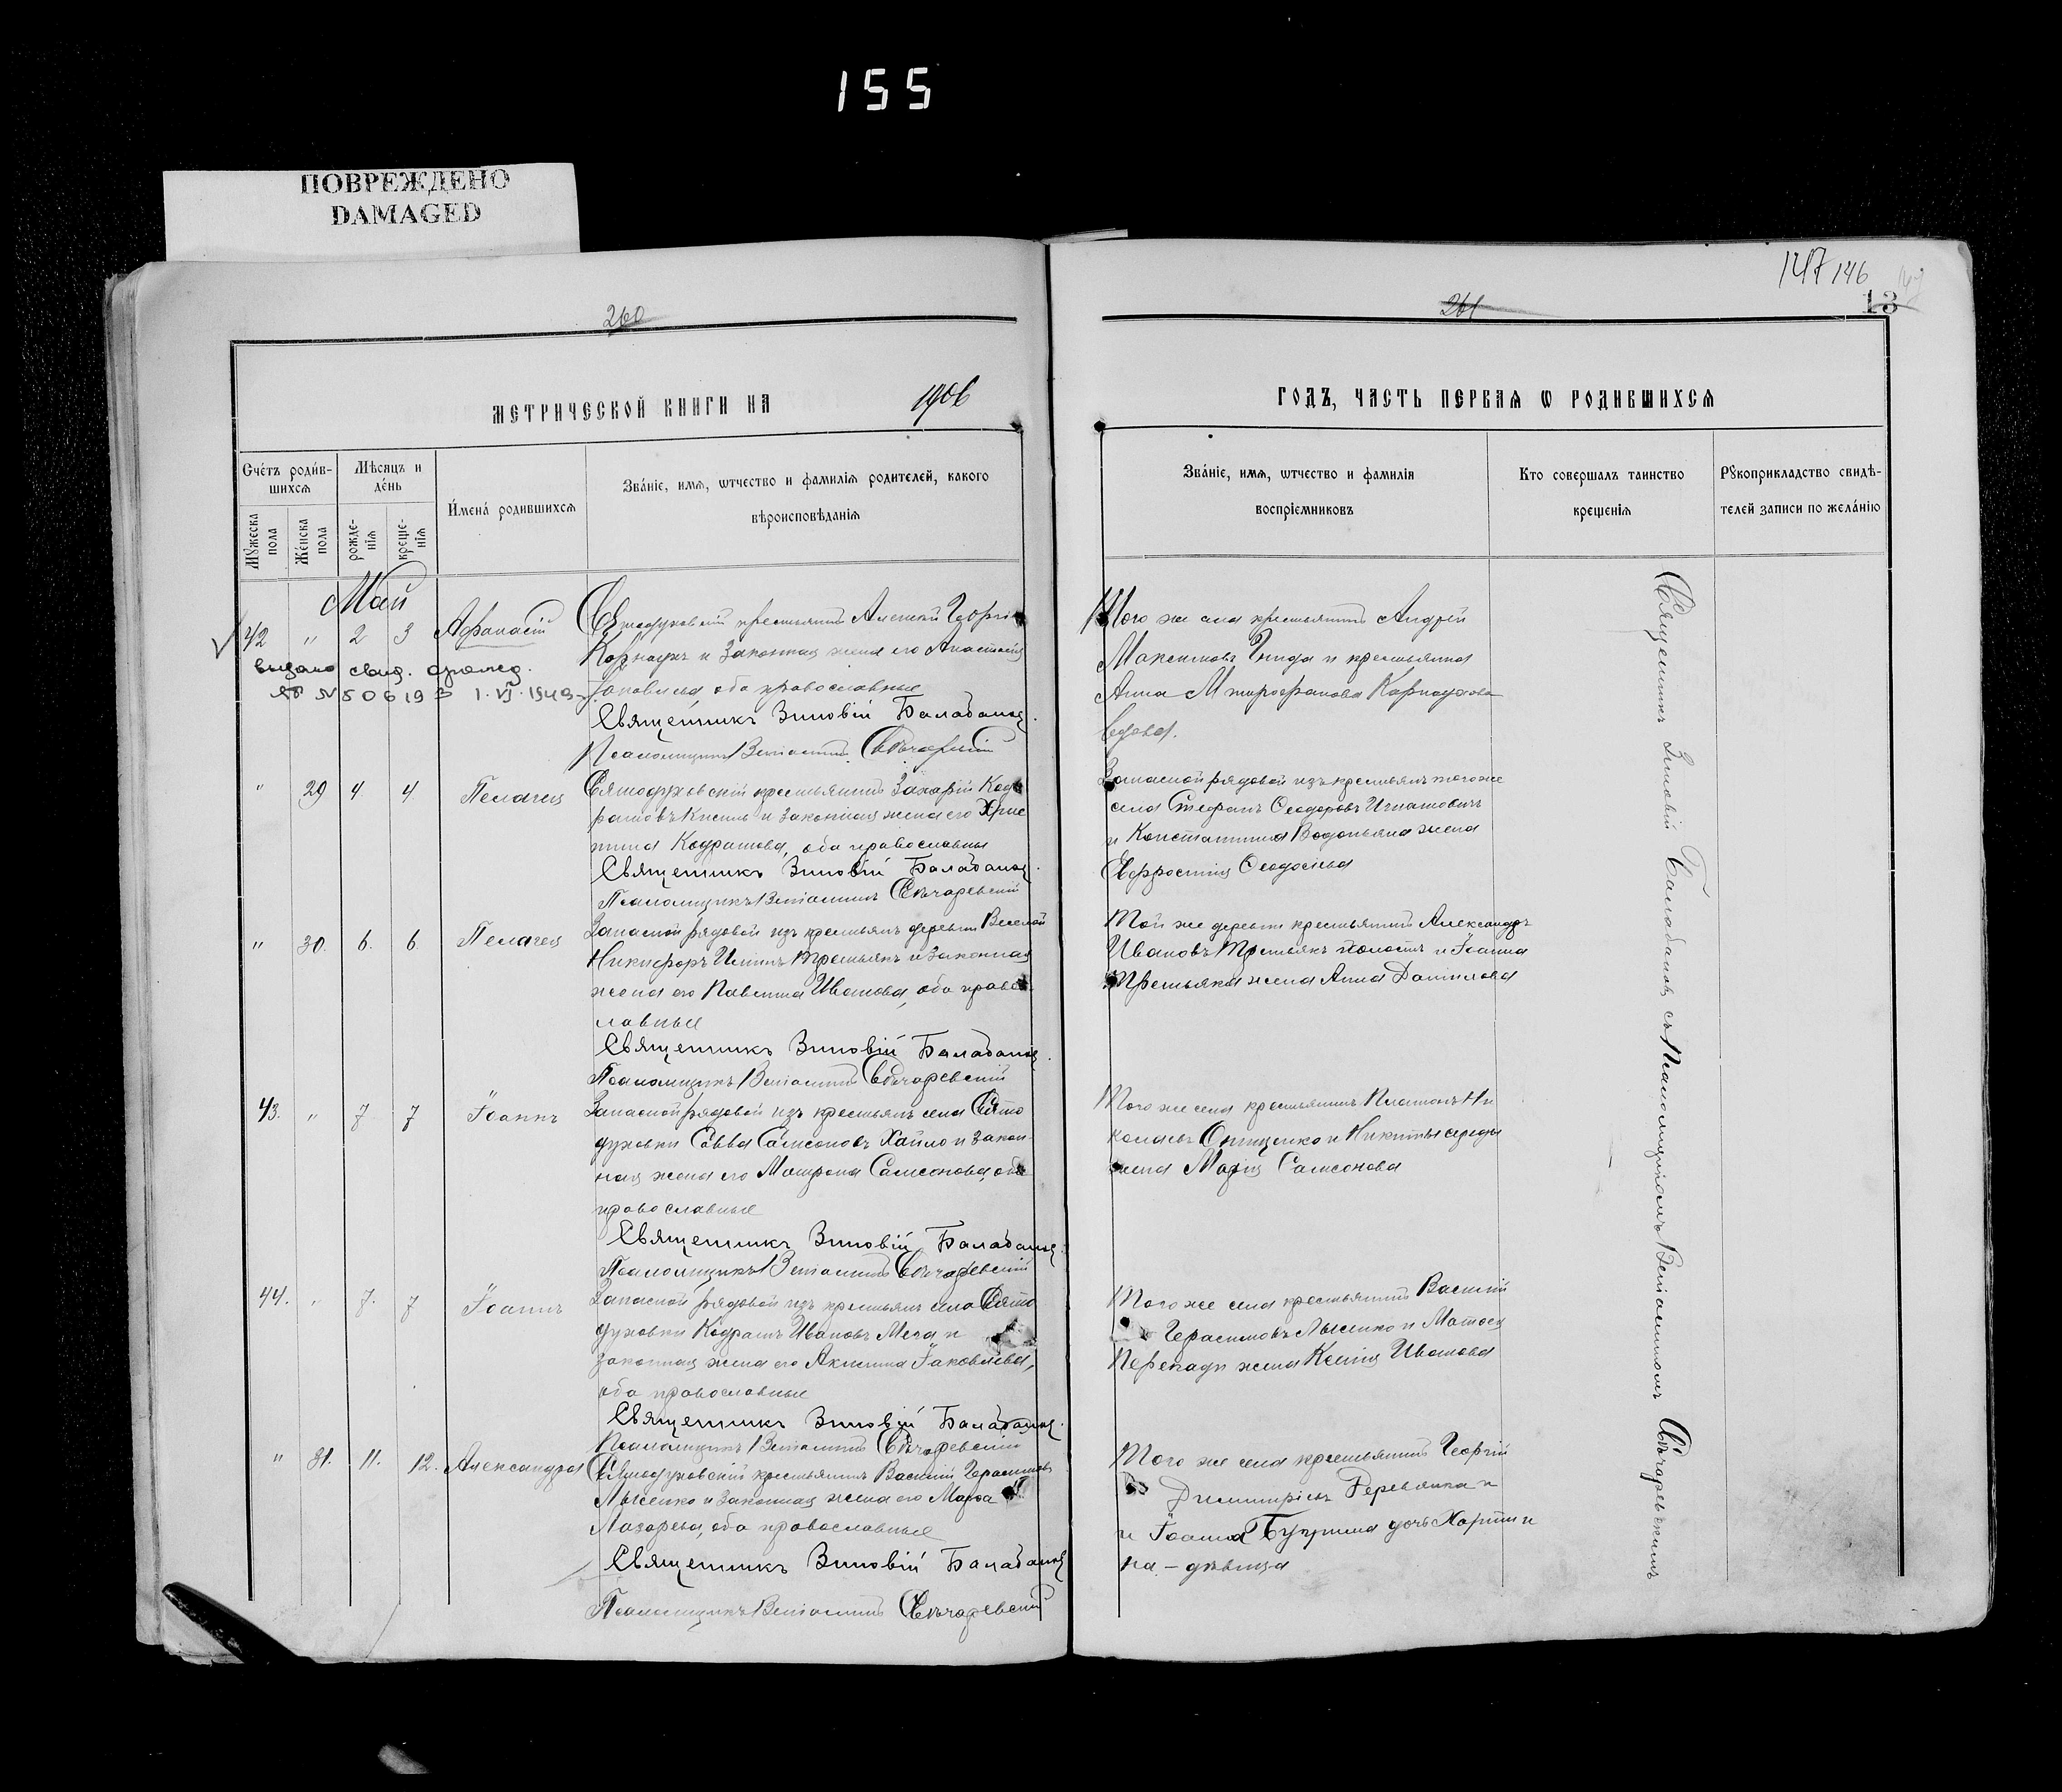 155
ПОВРЕЖДЕНО
DAMAGED
260
МЕТРИЧЕСКОЙ КНИГИ НА 1906
Сче́тъ роди́в-
шихсѧ
Мѣсѧцъ и
де́нь
Мꙋжеска
пола
Же́нска
пола
рожде-
нїѧ
креще-
нїѧ
И́мена́ родившихсѧ
Зва́нїе, имѧ, ѿтчество и фамилїѧ родителей, какого
вѣроисповѣданїѧ
Май
42 " 2 3 Афанасій
Святодуховскій крестьянинъ Алексій Георгіевъ
и законная жена его Анастасія
оба православные
выдано свид.
№ 50619 1.VI.1949
Священникъ Зиновій Балабановъ.
Псаломщикъ Веніаминъ Овчаревскій
" 29 4 4 Пелагея
Святодуховскій крестьянинъ Захарій Код-
ратовъ Кисиль и законная жена его Хрис
тина Кодратова, оба православны
Священникъ Зиновій Балабановъ.
Псаломщикъ Веніаминъ Овчаревскій
" 30. 6. 6 Пелагея
Запасной рядовой изъ крестьянъ деревни Веселой
Никифоръ Третьякъ и законная
жена его Павлина Иванова, оба право
славные
Священникъ Зиновій Балабановъ.
Псаломщикъ Веніаминъ Овчаревскій
43. " 7 7 Іоаннъ
Запасной рядовой изъ крестьянъ села Свято
духовки Савва Самсоновъ Хайло и закон-
ная жена его Матрона Самсонова, оба
православные
Священникъ Зиновій Балабановъ.
Псаломщикъ Веніаминъ Овчаревскій
44. " 7. 7 Іоаннъ
Запасной рядовой изъ крестьянъ села Свято
духовки Кодратъ Ивановъ и
законная жена его Акилина Іаковлева,
оба православные
Священникъ Зиновій Балабановъ.
Псаломщикъ Веніаминъ Овчаревскій
" 31. 11. 12. Александра
Святодуховскій крестьянинъ Василій Герасимовъ
Лысенко и законная жена его Марфа
Лазарева, оба православные
Священникъ Зиновій Балабановъ
Псаломщикъ Веніаминъ Овчаревскій
261
147 146
13
ГОДЪ, ЧАСТЬ ПЕРВАѦ Ѡ РОДИВШИХСѦ
Зва́нїе, имѧ, ѿтчество и фамилїѧ
воспрїемниковъ
Кто совершалъ таинство
крещенїѧ
Рꙋкоприкладство свидѣ-
телей записи по жела́нїю
Того же села крестьянинъ Андрей
Максимовъ и крестьянка
Анна Митрофанова Карнаухова
вдова.
Запасной рядовой изъ крестьянъ того же
села Стефанъ Ѳеодоровъ Игнатовичъ
и Константина Водопьяна жена
Евфросинія Ѳеодосіева
Той же деревни крестьянинъ Александръ
Ивановъ Третьякъ холостъ и Іоанна
Третьяка жена Анна Даніилова
Того же села крестьянинъ Платонъ Ни
колаевъ Онищенко и Никиты Середы
жена Марія Самсонова
Того же села крестьянинъ Василій
Герасимовъ Лысенко и Матѳея
жена Ксенія Иванова
Того же села крестьянинъ Георгій
Димитріевъ Деревянка и
и Іоанна дочь Харити
на - дѣвица
Священникъ Зиновій Балабановъ съ Псаломщикомъ Веніаминомъ Овчаревскимъ